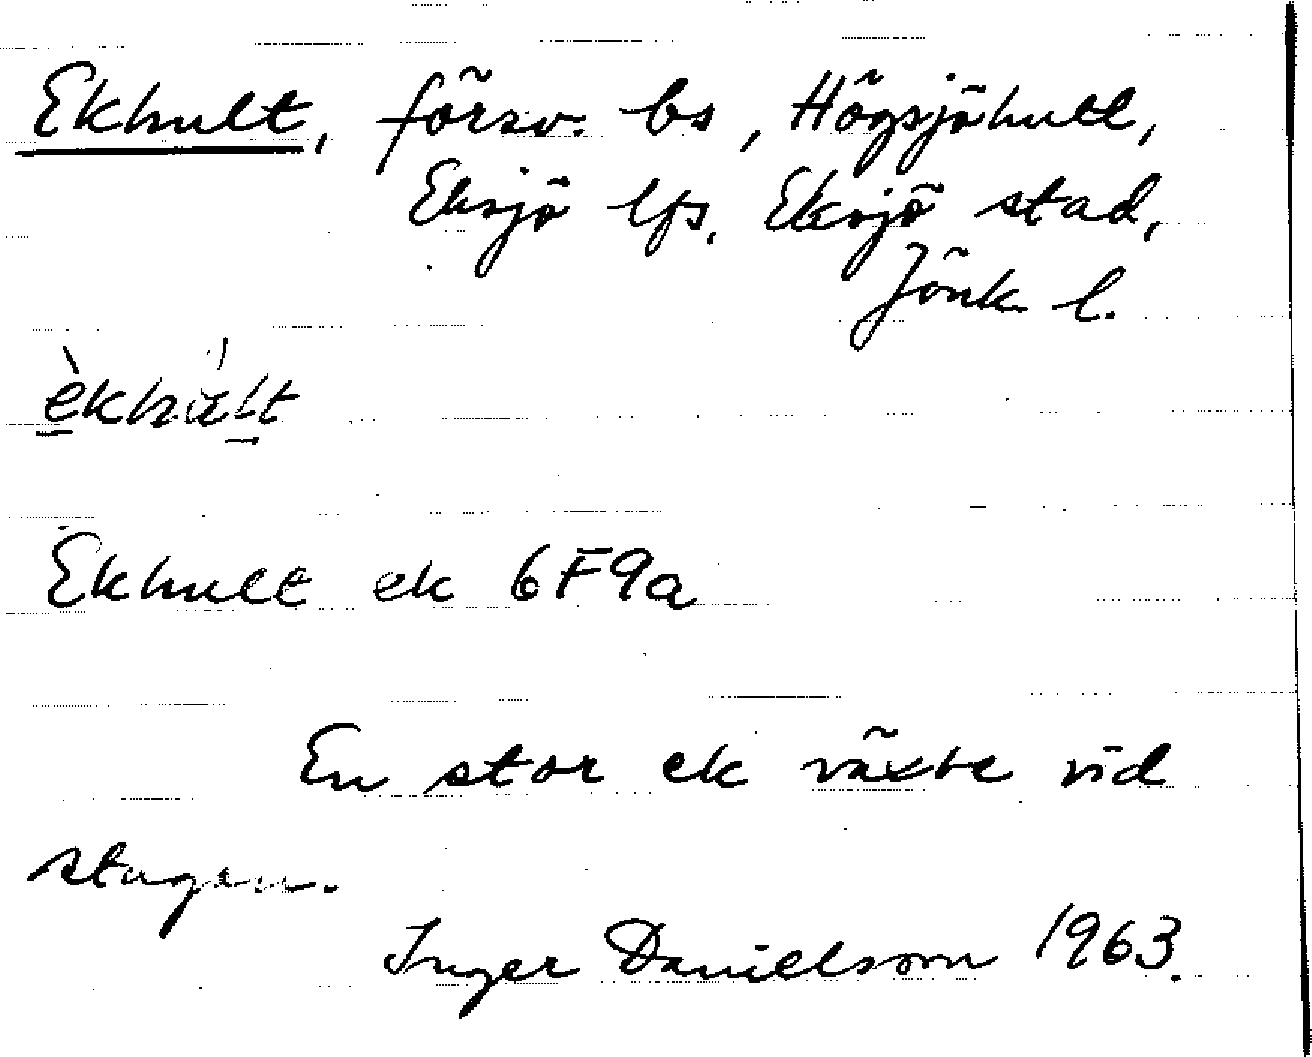 Ekhult, försv. bs, Högsjöhult,
Eksjö lfs, Eksjö stad,
Jönk. l.
èkhúlt
Ekhult ek 6F9a
En stor ek växte vid
stugan.
Inger Danielsson 1963.